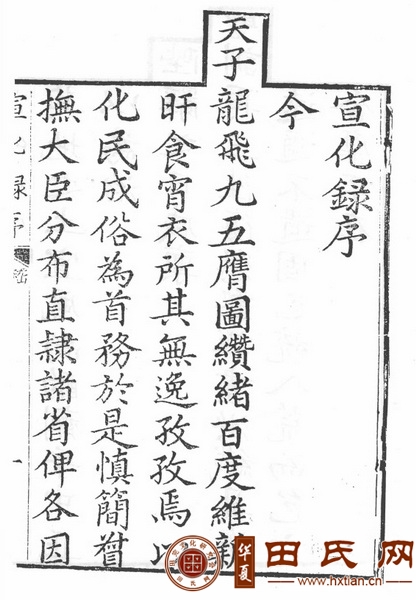 宣化録序
今
天子龍飛九五膺圖纘緒百度維新
旰食宵衣所其無逸孜孜焉以
化民成俗為首務於是慎簡督
撫大臣分布直隸諸省俾各因
宣化録序
一
华夏
田氏网
www.hxtian.cn